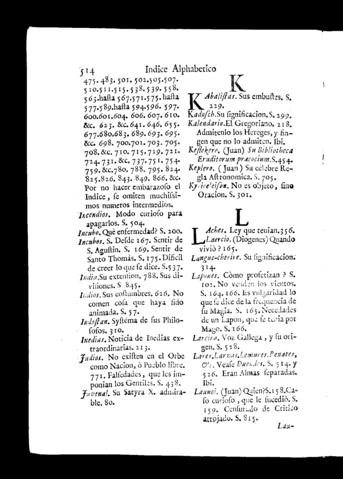 514 Indice Alphabetico
475. 483. 501. 502. 505. 507.
510. 511. 515. 538. 539. 558.
563. hasta 567. 571. 575. hasta
577. 589. hasta 594. 596. 597.
600. 601. 604. 606. 607. 610.
&c. 623. &c. 641. 646. 655.
677. 680. 683. 689. 693. 695.
&c. 698. 700. 701. 703. 705.
708. &c. 710. 715. 719. 721.
724. 731. &c. 737. 751. 754.
759. &c. 780. 788. 795. 814.
825. 826. 843. 849. 866. &c.
Por no hacer embarazoso el
Indice, se omiten muchissi-
mos numeros intermedios.
Incendios. Modo curioso para
apagarlos. S. 504.
Incubo. Què enfermedad? S. 200.
Incubos. S. Desde 167. Sentir de
S. Agustin. S. 169. Sentir de
Santo Thomas. S. 175. Dificil
de creer lo que se dice. S. 537.
Indio. Su extension, 788. Sus di-
visiones. S. 845.
Indios. Sus costumbres, 626. No
comen cosa que haya sido
animada. S. 57.
Indostan. Systéma de sus Philo-
sofos. 310.
Inedias. Noticia de Inedias ex-
traordinarias. 213.
Judios. No existen en el Orbe
como Nacion, ò Pueblo libre.
771. Falsedades, que les im-
ponian los Gentiles. S. 438.
Juvenal. Su Satyra X. admira-
ble. 80.
K
Kabalistas. Sus embustes. S.
229.
Kadosch. Su significacion. S. 299.
Kalendario. El Gregoriano. 218.
Admitenlo los Hereges, y fin-
gen que no lo admiten. Ibi.
Kestekero. (Juan) Su Bibliotheca
Eruditorum præcocium. S. 454.
Keplero. (Juan) Su célebre Re-
gla Astronomica. S. 705.
No es objeto, sino
Oracion. S. 301.
L
Laches. Ley que tenian. 356.
Laercio. (Diogenes) Quando
vivió? 165.
Langue-cherie. Su significacion.
314.
Lapones. Còmo profetizan? S.
102. No venden los vientos.
S. 164. 166. Es vulgaridad lo
que se dice de la frequencia de
su Magia. S. 165. Necedades
de un Lapon, que se tenia por
Mago. S. 166.
Lareira. Voz Gallega, y su ori-
gen. S. 528.
Lares, Larvas, Lemures, Penates,
&c. Vease Duendes. S. 524. y
526. Eran Almas separadas.
Ibi.
Launoi. (Juan) Quien? S. 158. Ca-
so curioso, que le sucedió. S.
159. Censurado de Critico
arrojado. S. 815.
Lau-